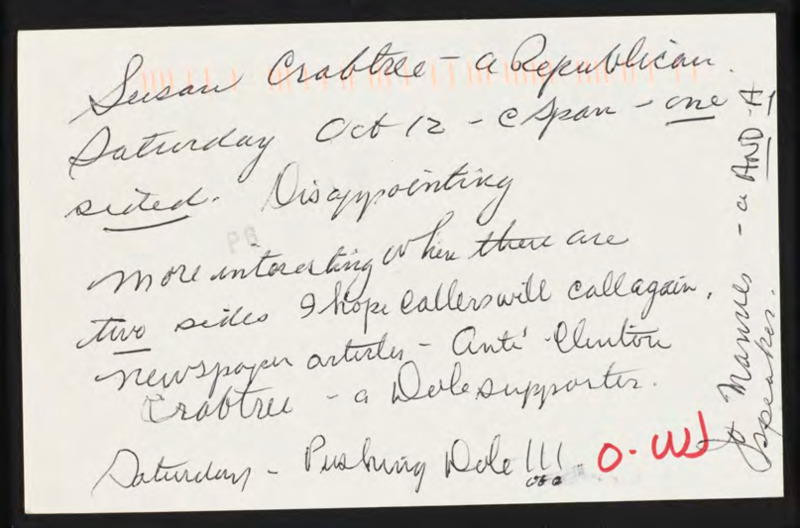 Susan Crabtree - a Republican.
Saturday Oct 12 - C Span - one
sided. Disappointing
more interesting when there are
two sides I hope callers will call again.
newspaper articles - Anti Clinton
Crabtree - a Dole supporter.
Saturday - Pushing Dole !!!
O-W
a AND A
speaker.